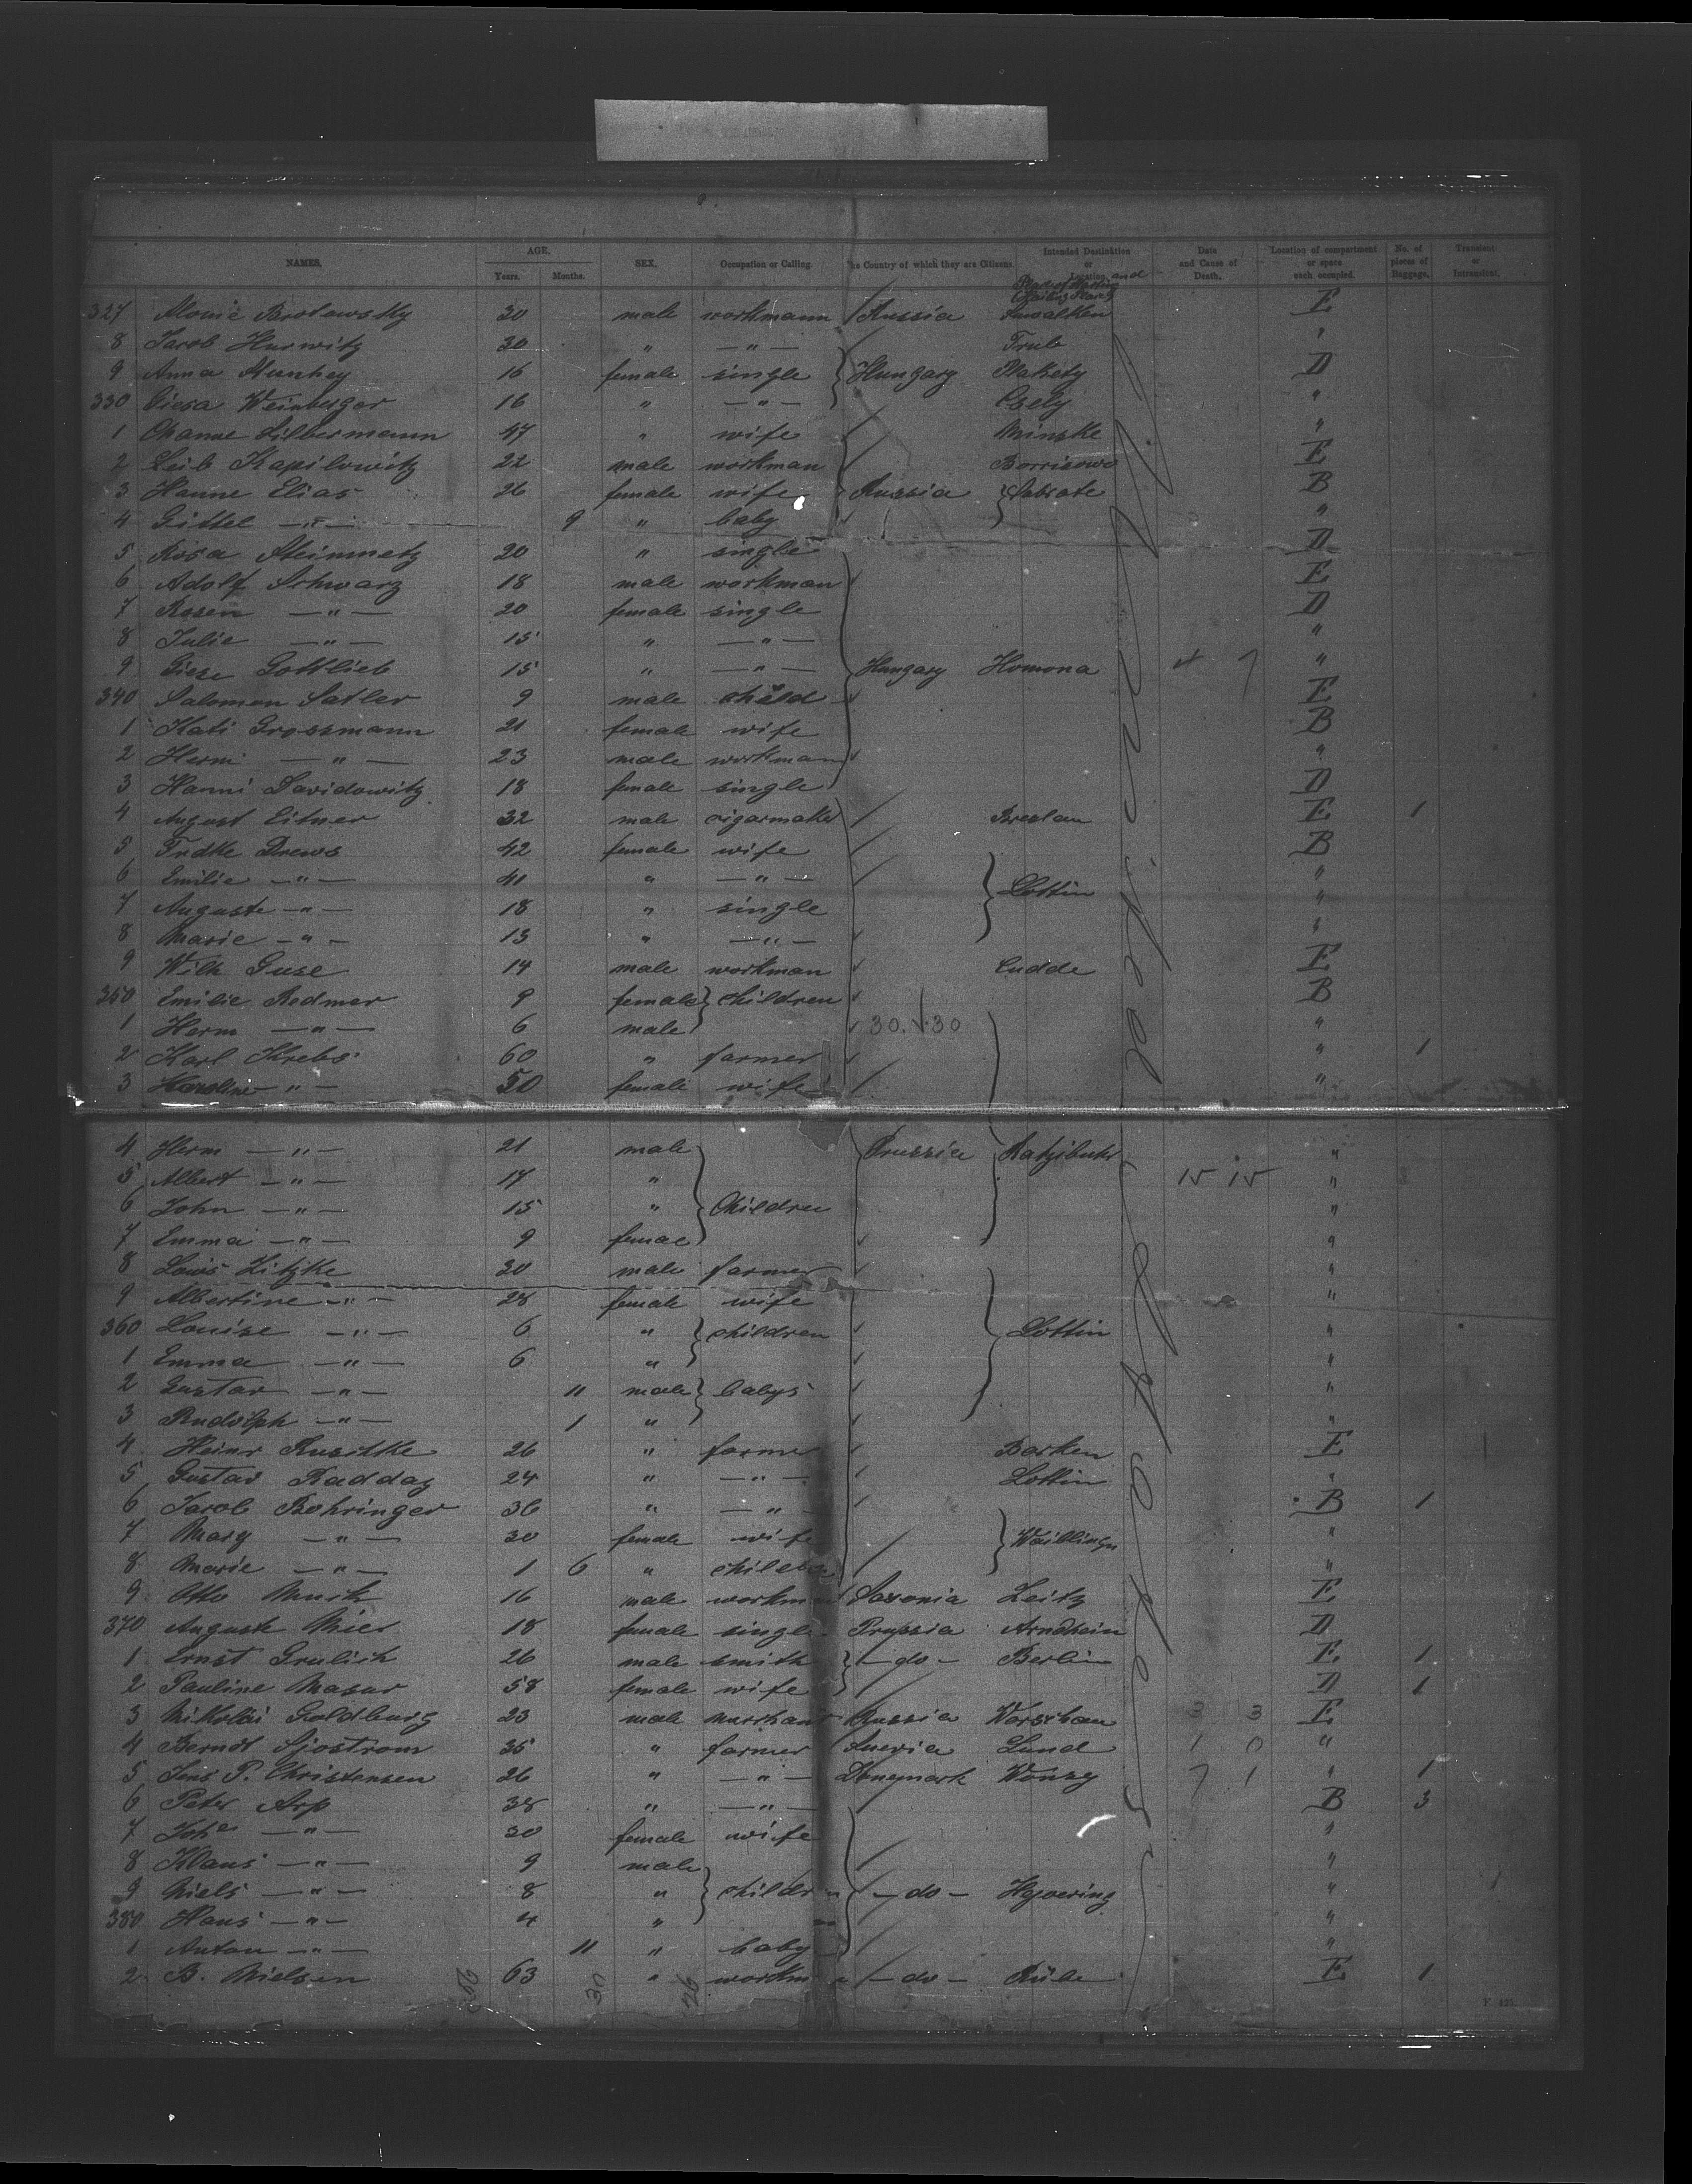 NAMES. AGE. Years. Months. SEX. Occupation or Calling. The Country of which they are Citizens. Intended Destination or Location. and Date and Cause of Death. Location of compartment or space each occupied. No. of pieces of Baggage. Transient or Intransient.
327 Brodowsky 30 male workmann Russia Suwalken E
8 Jacob Hurwitz 30 " — " — "
9 Anna 16 female single Hungary D
330 Weinberger 16 " — " — "
1 Channe Silbermann 47 " wife Minske "
2 Leib Kapilowitz 22 male workman Borrisowo E
3 Hanne Elias 26 female wife Russia B
4 Gittel — " — 9 " baby "
5 Rosa Steinmetz 20 " single D
6 Adolf Schwarz 18 male workman E
7 Rosen — " — 20 female single D
8 Julie — " — 15 " — " — "
9 Giese Gottlieb 15 " — " — Hungary Homona 4 7 "
340 Salomon Satler 9 male child E
1 Kati Grossmann 21 female wife B
2 Herm — " — 23 male workman "
3 Hanni Davidowitz 18 female single D
4 August Eitner 32 male cigarmaker Breslau E 1
5 Frdke Drews 42 female wife B
6 Emilie — " — 41 " — " — Lottin "
7 Auguste — " — 18 " single "
8 Marie — " — 13 " — " — "
9 Wilh Guse 14 male workman Cudde E
350 Emilie Redmer 9 female children B
1 Herm — " — 6 male 30. 30 "
2 Karl Krebs 60 " farmer " 1
3 Karoline — " — 50 female wife "
4 Herm — " — 21 male Prussia Ratzibuhr "
5 Albert — " — 17 " 15 15 "
6 John — " — 15 " Children "
7 Emma — " — 9 femae "
8 Louis Zitzke 30 male farmer "
9 Albertine — " — 28 female wife "
360 Louise — " — 6 " children Lottin "
1 Emma — " — 6 " "
2 Gustav — " — 11 male babys "
3 Rudolph — " — 1 " "
4 Heinr 26 " farmer Barken E
5 Gustav Raddaz 24 " — " — Lottin "
6 Jacob Bohringer 36 " — " — B 1
7 Mary — " — 30 female wife Waiblingen "
8 Marie — " — 1 6 " "
9 Otto Munk 16 male workman Saxonia Zeitz E
370 Auguste Mies 18 female single Prussia Arndhein D
1 Ernst Grulich 26 male smith — do — Berlin E 1
2 Pauline Masur 58 female wife D 1
3 Nikolai Goldburg 23 male merchant Russia Warschau 3 3 E
4 Berndt Sjostrom 35 " farmer Suevia Lund 1 0 "
5 Jens P. Christensen 26 " — " — Danemark 7 1 " 1
6 Peter Arp 38 " — " — B 3
7 Joh — " — 30 female wife "
8 Klaus — " — 9 male "
9 Niels — " — 8 " children — do — Hyoering "
380 Hans — " — 4 " "
1 Anton — " — 11 " baby "
2 B. Nielsen 63 " workman — do — E 1
30 26